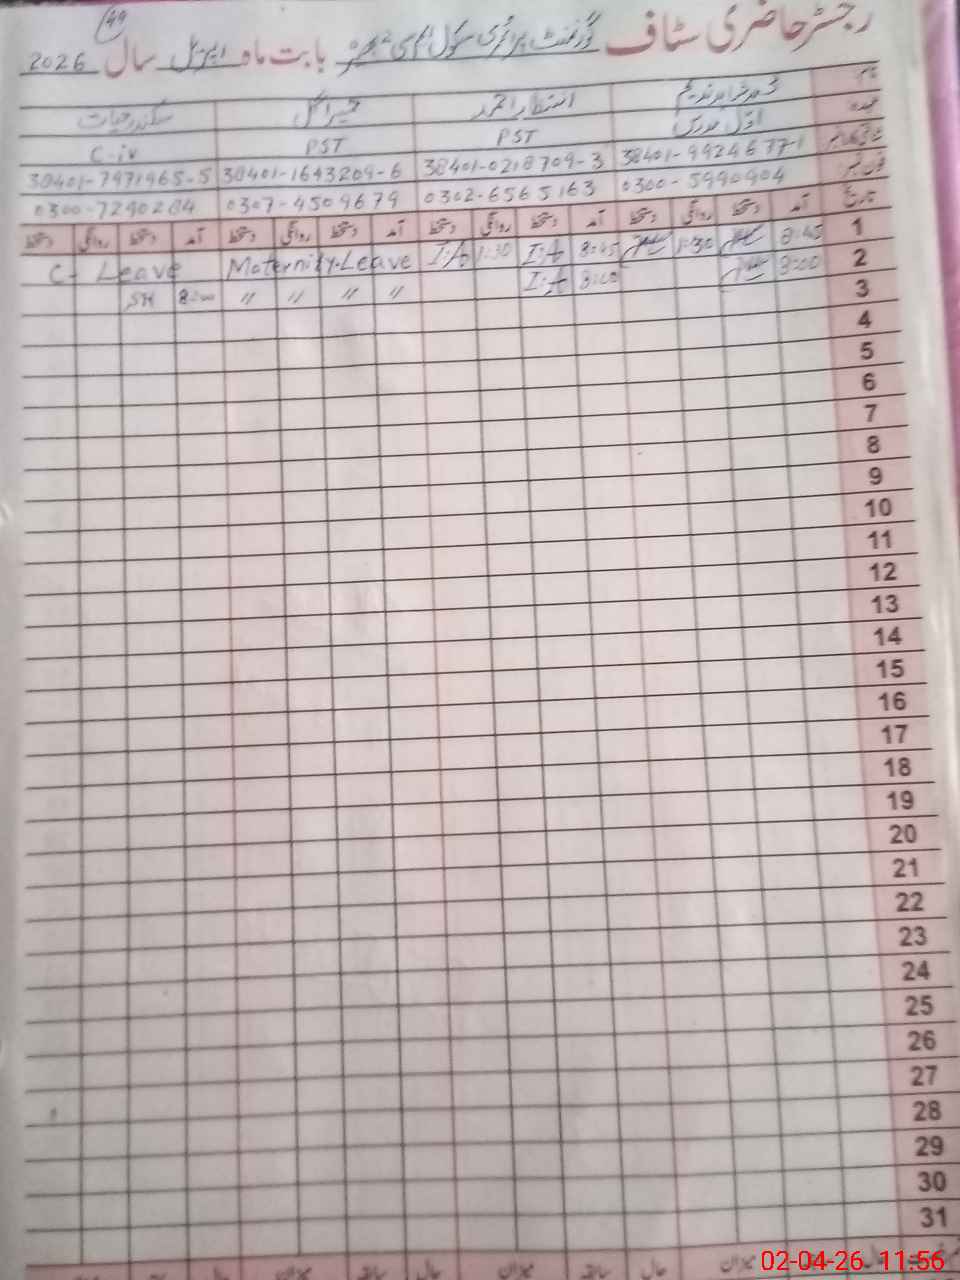 49
رجسٹر حاضری سٹاف گورنمنٹ پرائمری سکول بابت ماہ اپریل سال 2026
نام
عہدہ اول مدرس PST PST C-iv
انتظار احمد سکندر حیات
38401-9924677-1 38401-0218709-3 38401-1643209-6 38401-7971965-5
0300-5990904 0302-6565163 0307-4509679 0300-7290284
تاریخ آمد دستخط روانگی دستخط آمد دستخط روانگی دستخط آمد دستخط روانگی دستخط آمد دستخط روانگی دستخط
1 8:45 1:30 8:45 I:A 1:30 I:A Maternity Leave C- Leave
2 8:00 8:00 I:A 〃 〃 〃 〃 8:00 SH
3
4
5
6
7
8
9
10
11
12
13
14
15
16
17
18
19
20
21
22
23
24
25
26
27
28
29
30
31
حال میزان حال سابقہ میزان حال سابقہ میزان حال سابقہ میزان
02-04-26 11:56